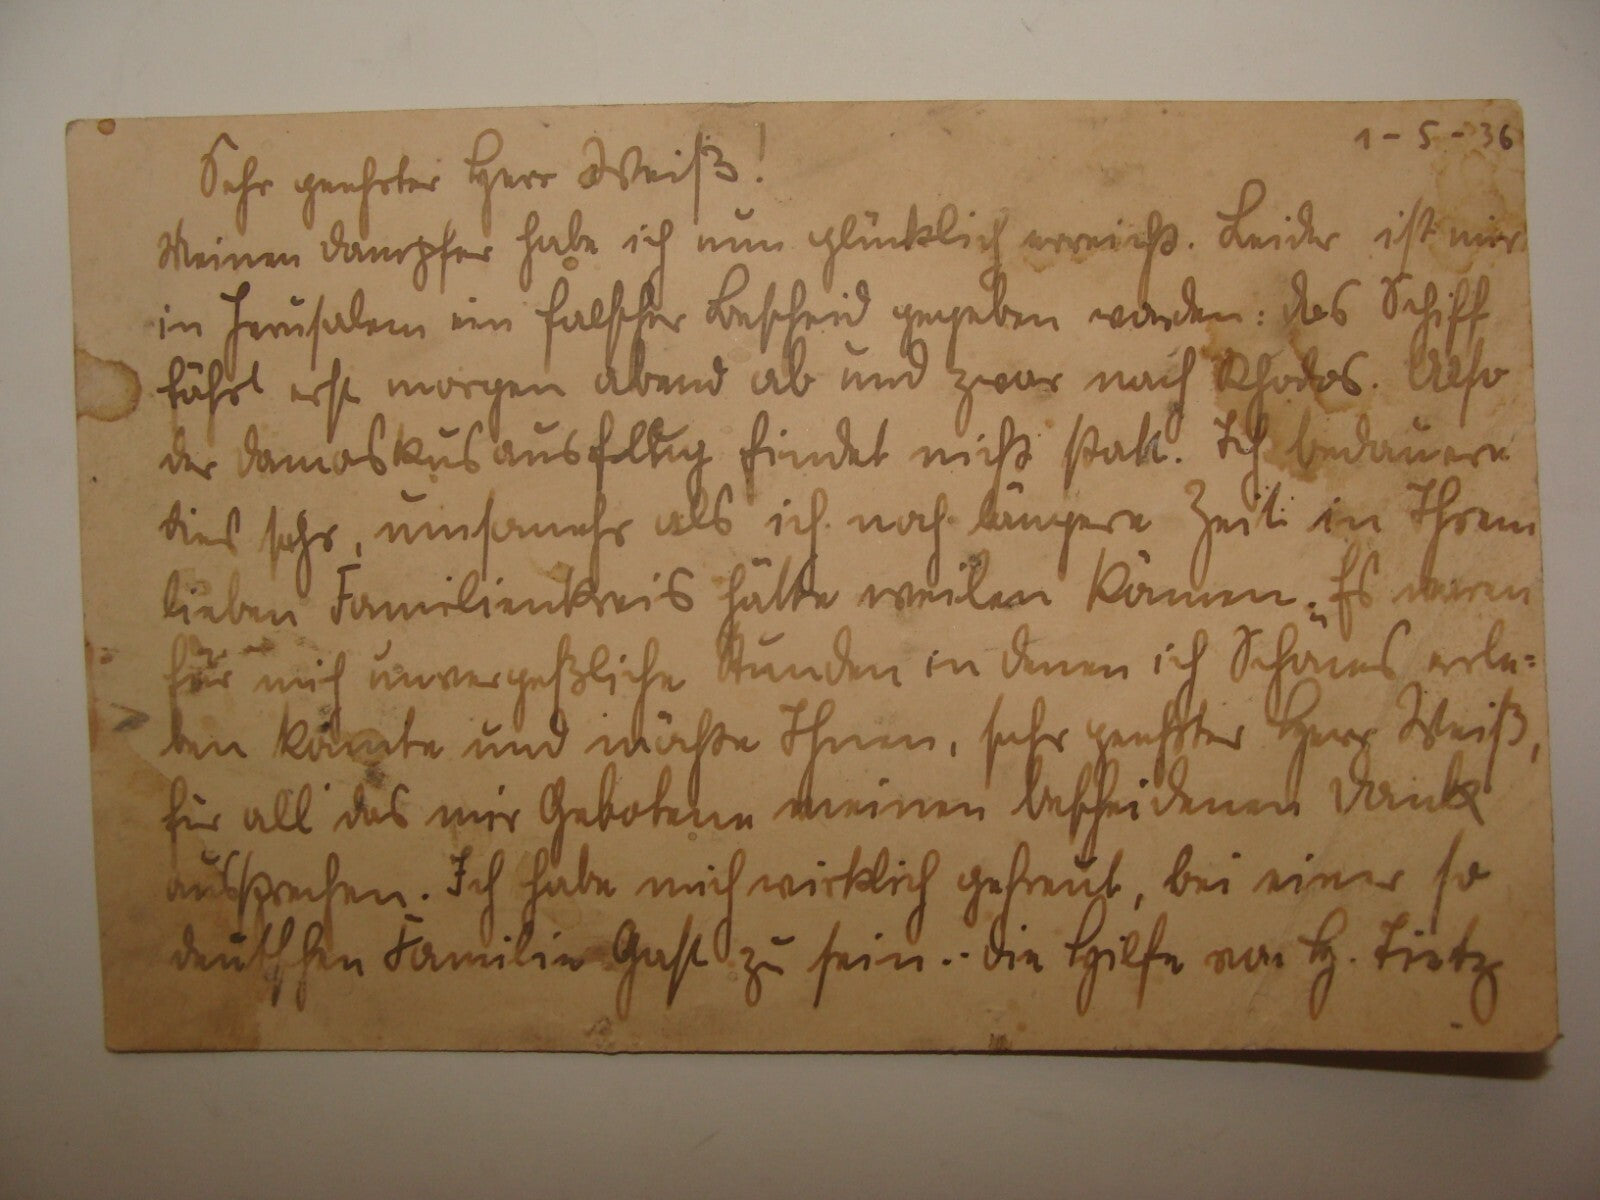 1-5-36
Sehr geehrter Herr Weiß!
Meinen Dampfer habe ich nun glücklich erreicht. Leider ist mir
in Jerusalem ein falscher Bescheid gegeben worden: das Schiff
fährt erst morgen abend ab und zwar nach Rhodos. Also
der Damaskusausflug findet nicht statt. Ich bedauere
dies sehr, umsomehr als ich noch längere Zeit in Ihrem
lieben Familienkreis hätte weilen können. Es waren
für mich unvergeßliche Stunden in denen ich Schönes erle=
ben konnte und möchte Ihnen, sehr geehrter Herr Weiß,
für all' das mir Gebotene meinen bescheidenen Dank
aussprechen. Ich habe mich wirklich gefreut, bei einer so
deutschen Familie Gast zu sein. Die Hilfe von H. Tietz